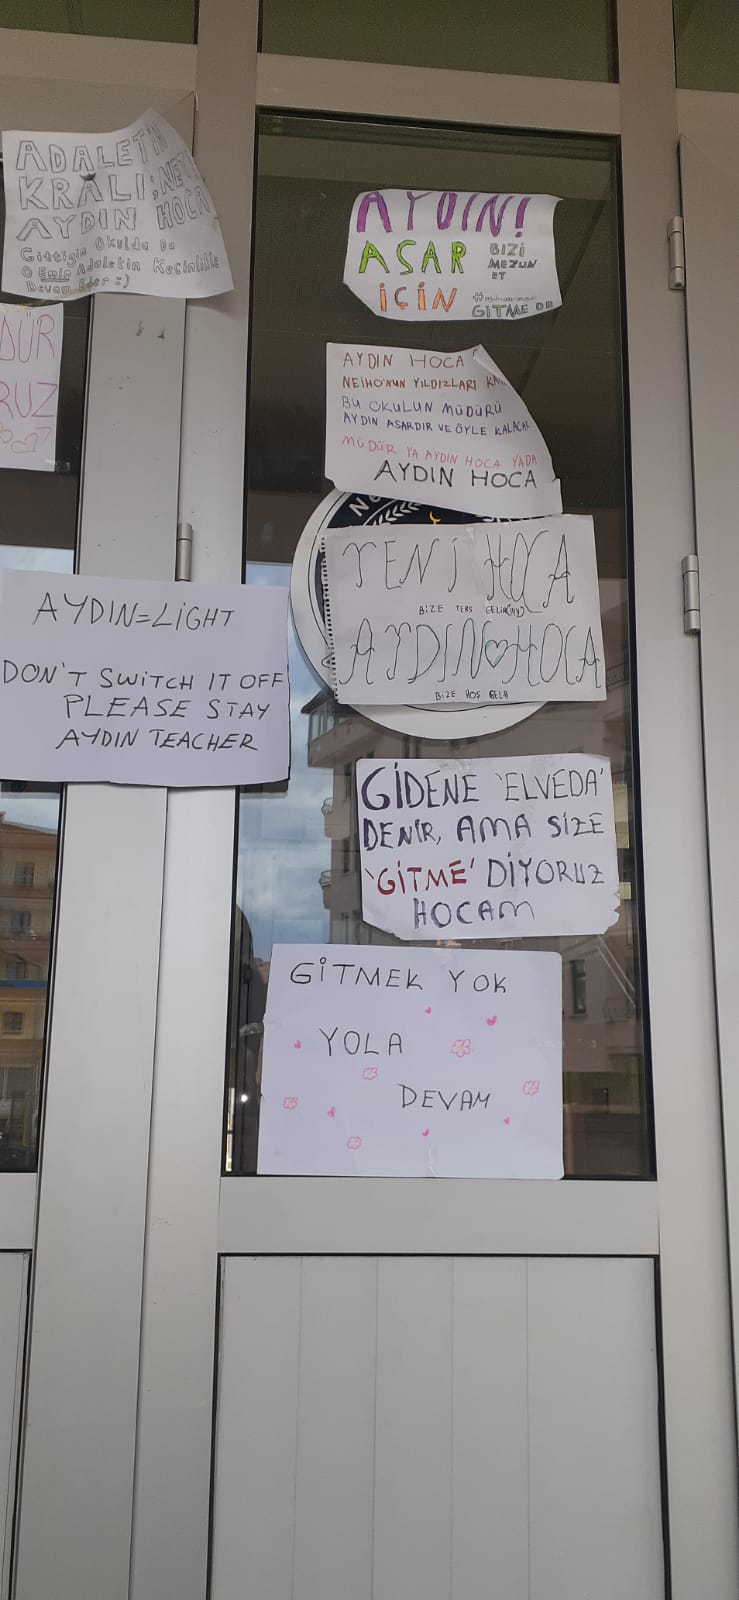 ADALETİN
KRALI;
AYDIN HOCA
Gittiğin Okulda Da
O Emin Adaletin Kesinlikle
Devam Eder :)
DÜR
RUZ
AYDIN!
ASAR
İÇİN
BİZİ
MEZUN
ET
GİTME
AYDIN HOCA
NEİHO'NUN YILDIZLARI
BU OKULUN MÜDÜRÜ
AYDIN ASARDIR VE ÖYLE KALACAK
MÜDÜR YA AYDIN HOCA YADA
AYDIN HOCA
YENİ HOCA
BİZE TERS GELİR
AYDIN HOCA
BİZE HOŞ GELR
AYDIN=LİGHT
DON'T SWITCH IT OFF
PLEASE STAY
AYDIN TEACHER
GİDENE 'ELVEDA'
DENİR, AMA SİZE
'GİTME' DİYORUZ
HOCAM
GİTMEK YOK
YOLA
DEVAM